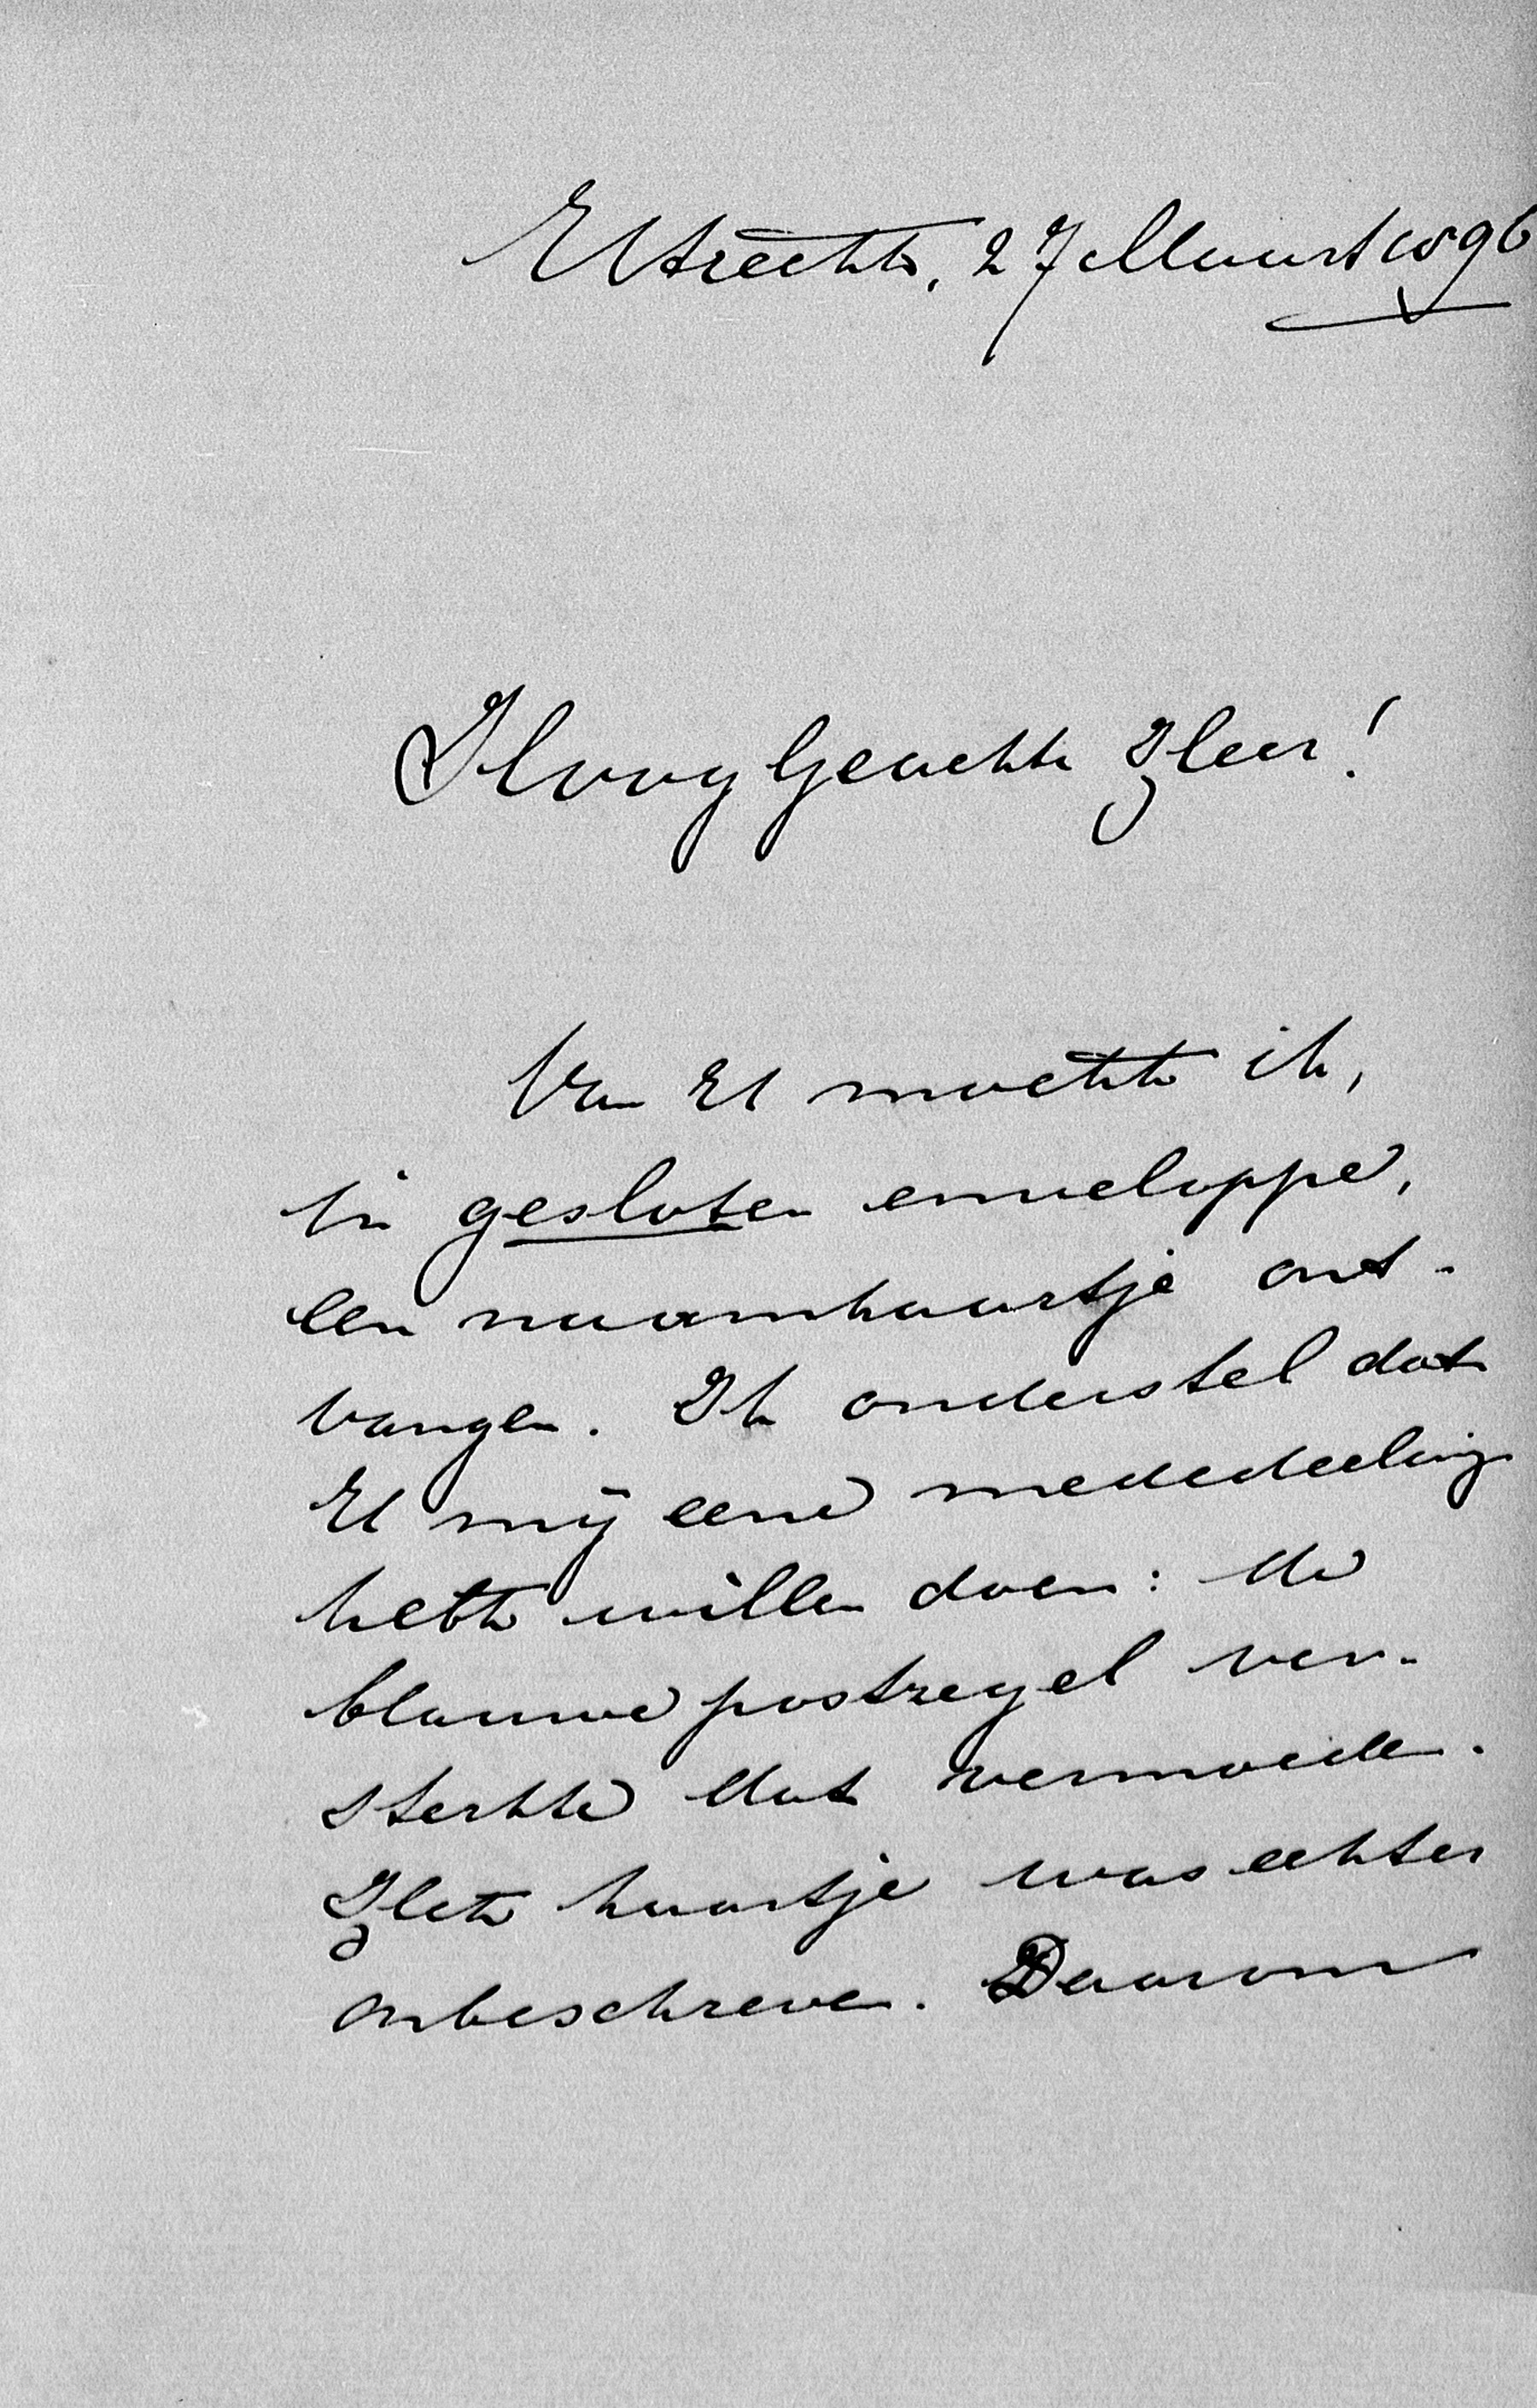 Utrecht, 27 Maart 1896
Hoog Geachte Heer!
Van U mocht ik,
in gesloten enveloppe,
een naamkaartje ont-
vangen. Ik onderstel dat
U mij eene mededeeling
hebt willen doen: de
blauwe postzegel ver-
sterkte dat vermoeden.
Het kaartje was echter
onbeschreven. Daarom